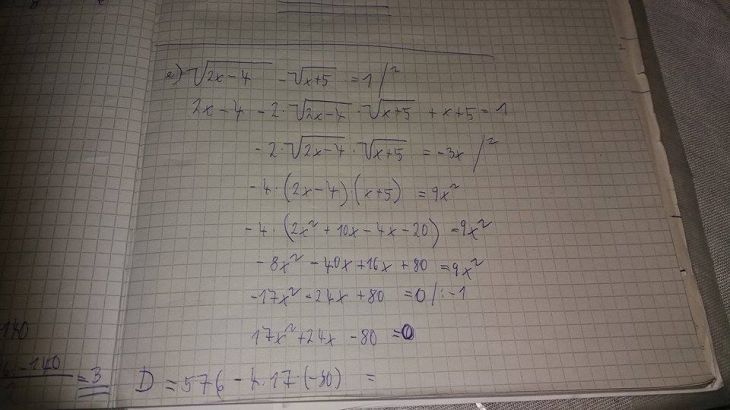 a) √2x-4 - √x+5 = 1 /²
2x-4 - 2·√2x-4 · √x+5 + x+5 = 1
-2·√2x-4 · √x+5 = -3x /²
-4·(2x-4)·(x+5) = 9x²
-4·(2x²+10x-4x-20) = 9x²
-8x² -40x+16x+80 = 9x²
-17x² -24x +80 = 0 /:-1
17x²+24x -80 = 0
D = 576 - 4·17·(-80) =
140
-140 = 3